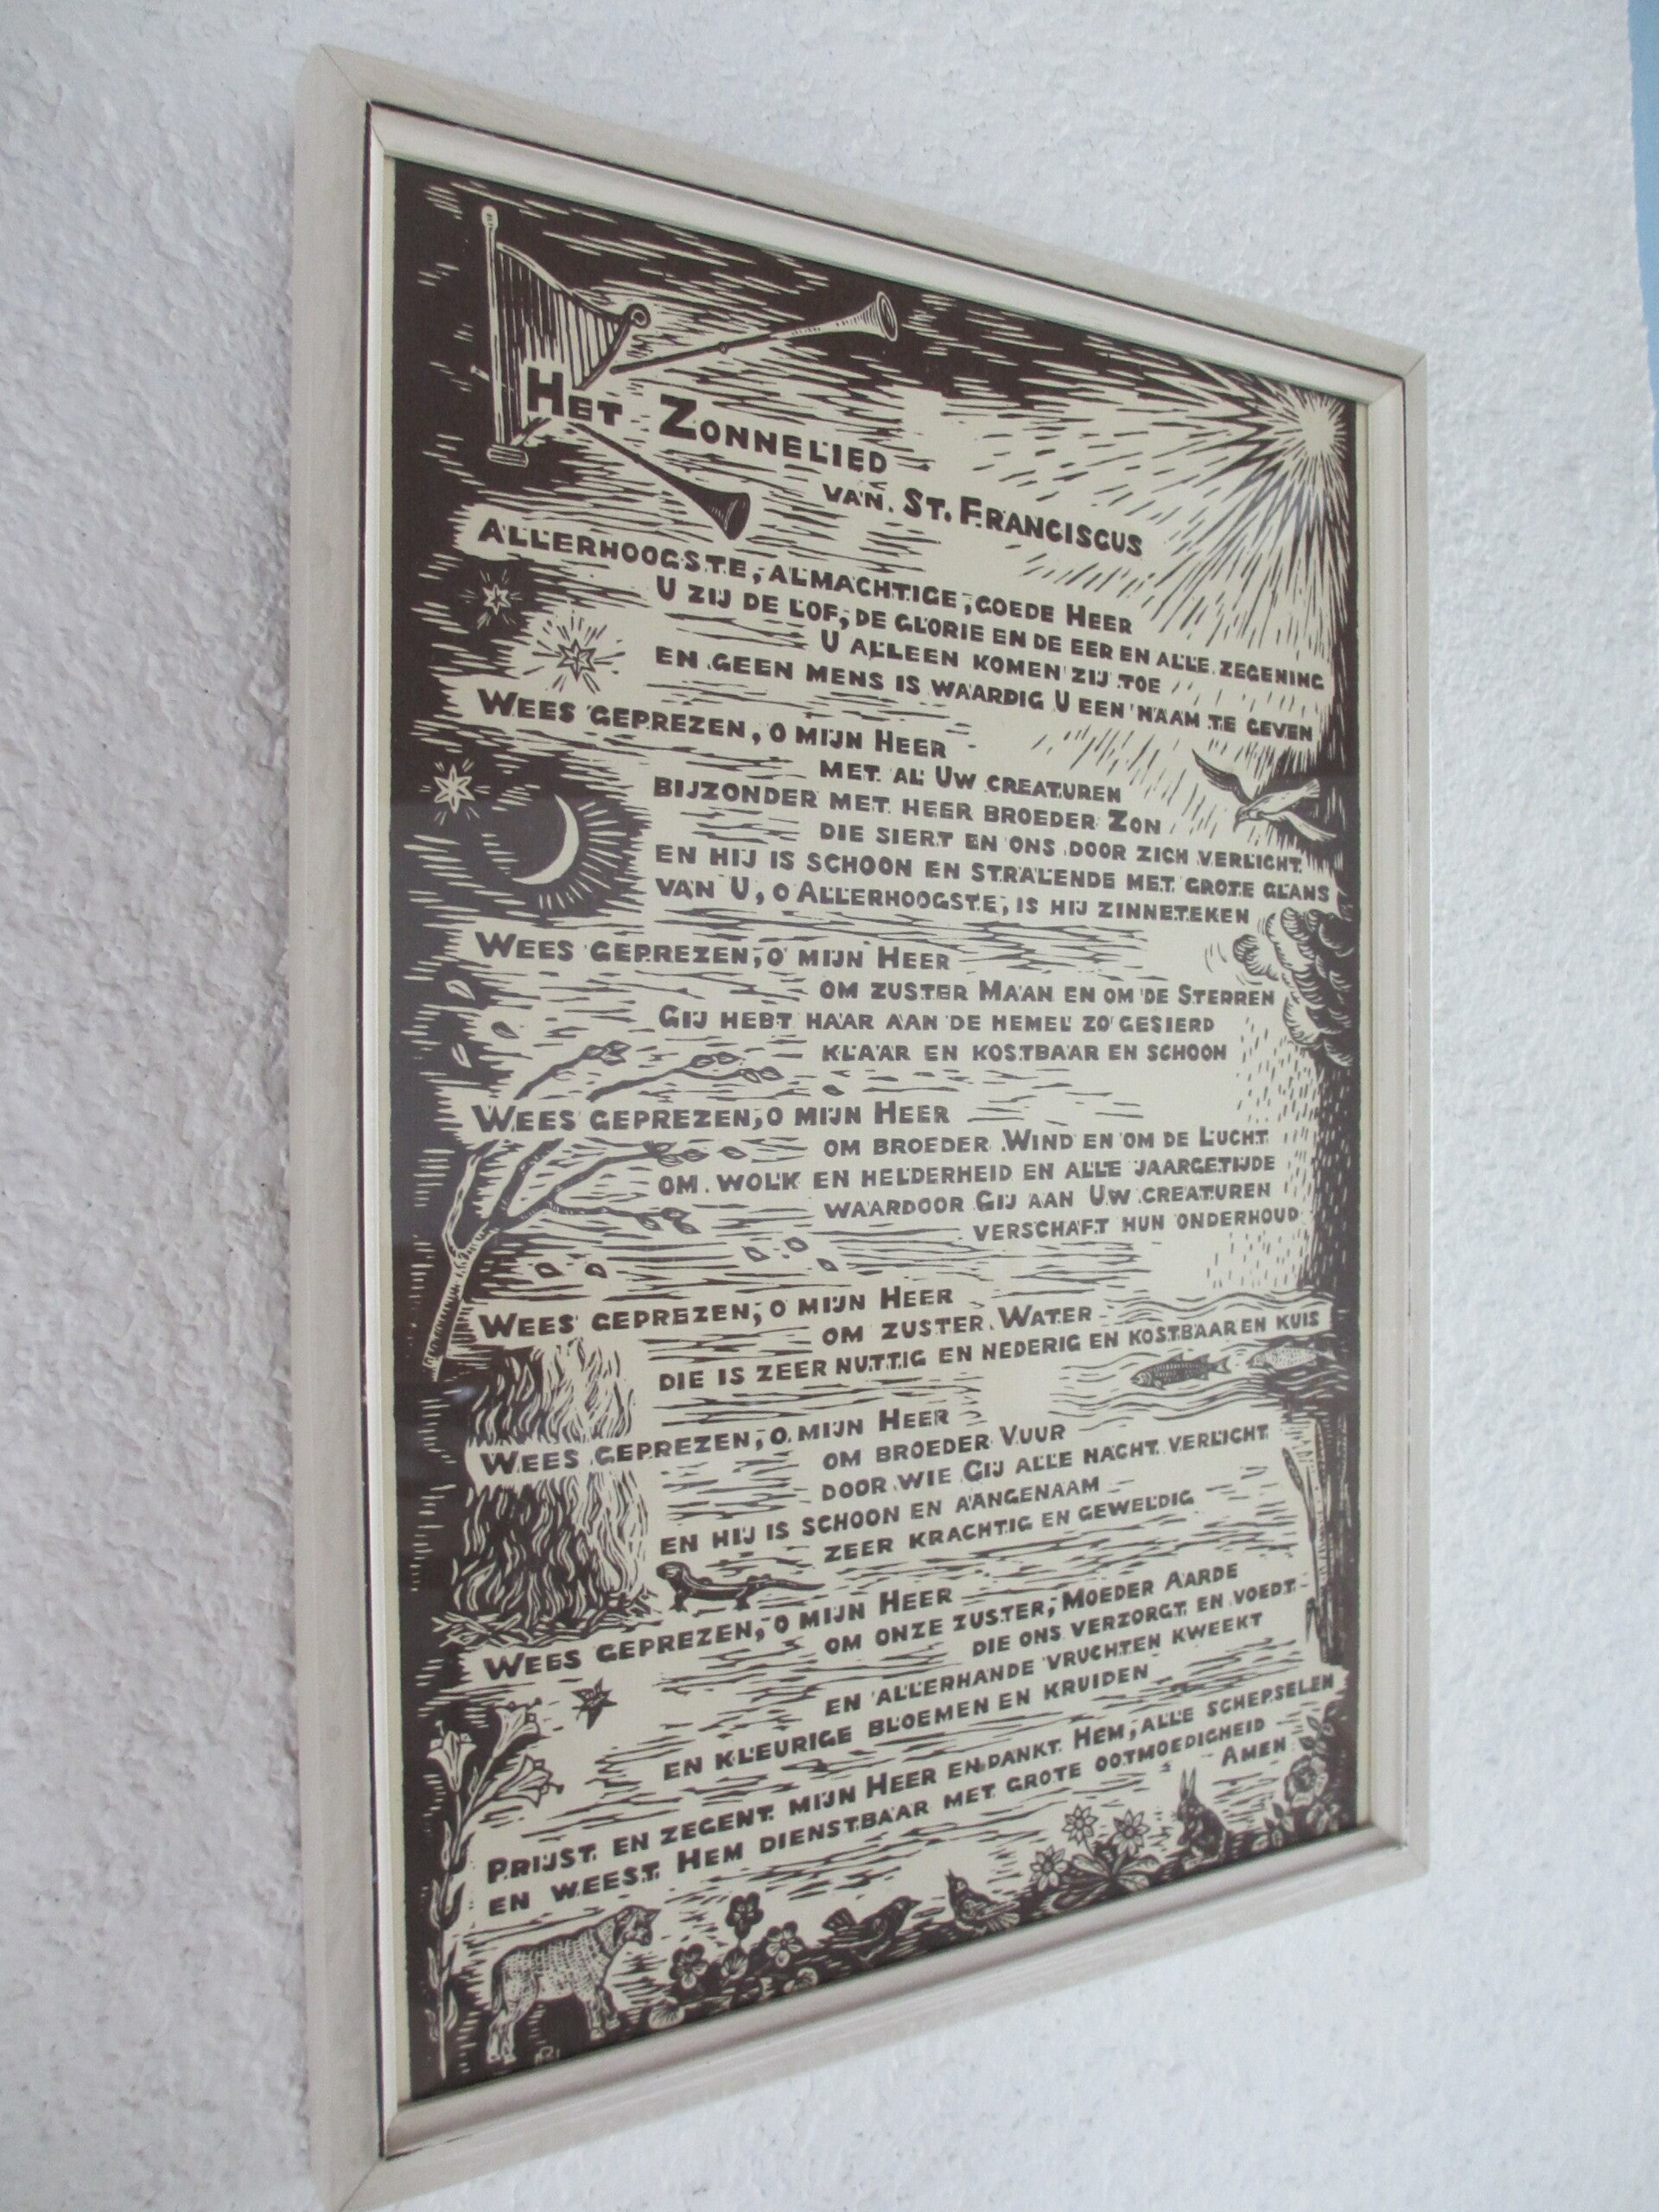 Het Zonnelied
van St. Franciscus
Allerhoogste, almachtige, goede Heer
U zij de lof, de glorie en de eer en alle zegening
U alleen komen zij toe
en geen mens is waardig U een naam te geven
Wees geprezen, o mijn Heer
met al Uw creaturen
bijzonder met heer broeder Zon
die siert en ons door zich verlicht
en hij is schoon en stralende met grote glans
van U, o Allerhoogste, is hij zinneteken
Wees geprezen, o mijn Heer
om zuster Maan en om de Sterren
Gij hebt haar aan de hemel zo gesierd
klaar en kostbaar en schoon
Wees geprezen, o mijn Heer
om broeder Wind en om de Lucht
om wolk en helderheid en alle jaargetijde
waardoor Gij aan Uw creaturen
verschaft hun onderhoud
Wees geprezen, o mijn Heer
om zuster Water
die is zeer nuttig en nederig en kostbaar en kuis
Wees geprezen, o mijn Heer
om broeder Vuur
door wie Gij alle nacht verlicht
en hij is schoon en aangenaam
zeer krachtig en geweldig
Wees geprezen, o mijn Heer
om onze zuster, Moeder Aarde
die ons verzorgt en voedt
en allerhande vruchten kweekt
en kleurige bloemen en kruiden
Prijst en zegent mijn Heer en dankt Hem, alle schepselen
en weest Hem dienstbaar met grote ootmoedigheid
Amen